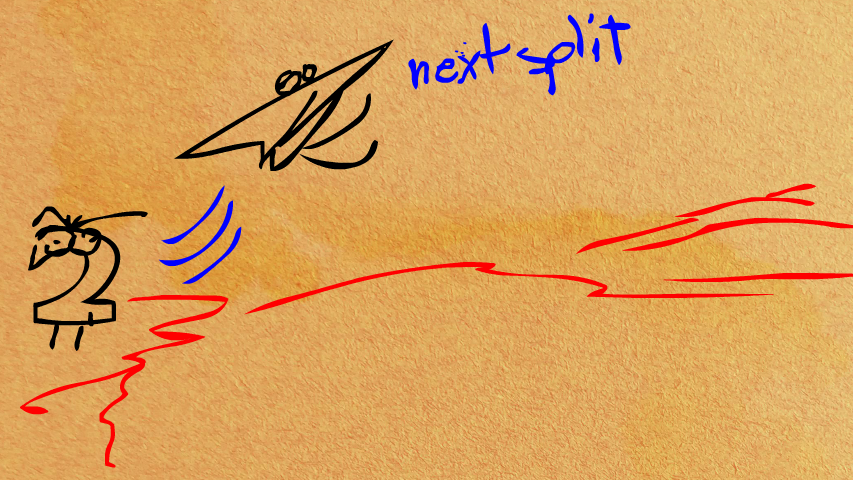 next split
2